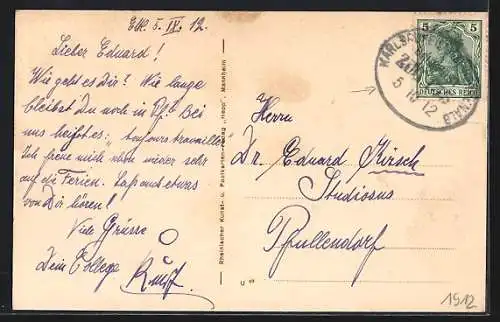 Ett. 5. IV. 12.
Lieber Eduard!
Wie geht es Dir? Wie lange
bleibst Du noch in Pf.? Bei
uns heißt es: "toujours travailler"
Ich freue mich aber wieder sehr
auf die Ferien. Laß auch etwas
von Dir hören!
Viele Grüsse
Dein College
Rumpf
Rheinischer Kunst- u. Postkarten-Verlag "Hepp", Mannheim
5 5
DEUTSCHES REICH
5 12
BAHNP
Herrn
Dr. Eduard Kirsch
Studiosus
Pfullendorf
1912